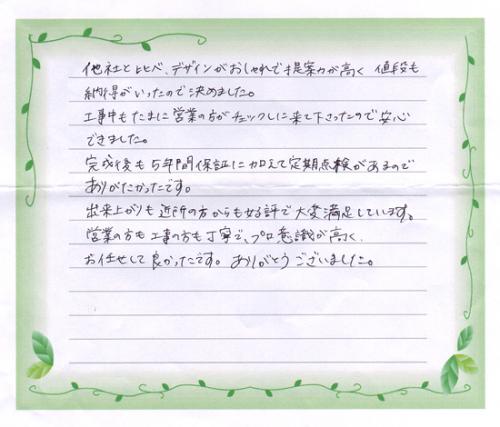 他社と比べ、デザインがおしゃれで提案力が高く 値段も
納得がいったので決めました。
工事中もたまに営業の方がチェックしに来て下さったので安心
できました。
完成後も5年間保証に加えて定期点検があるので
ありがたかったです。
出来上がりも近所の方からも好評で大変満足しています。
営業の方も工事の方も丁寧で、プロ意識が高く、
お任せして良かったです。ありがとうございました。